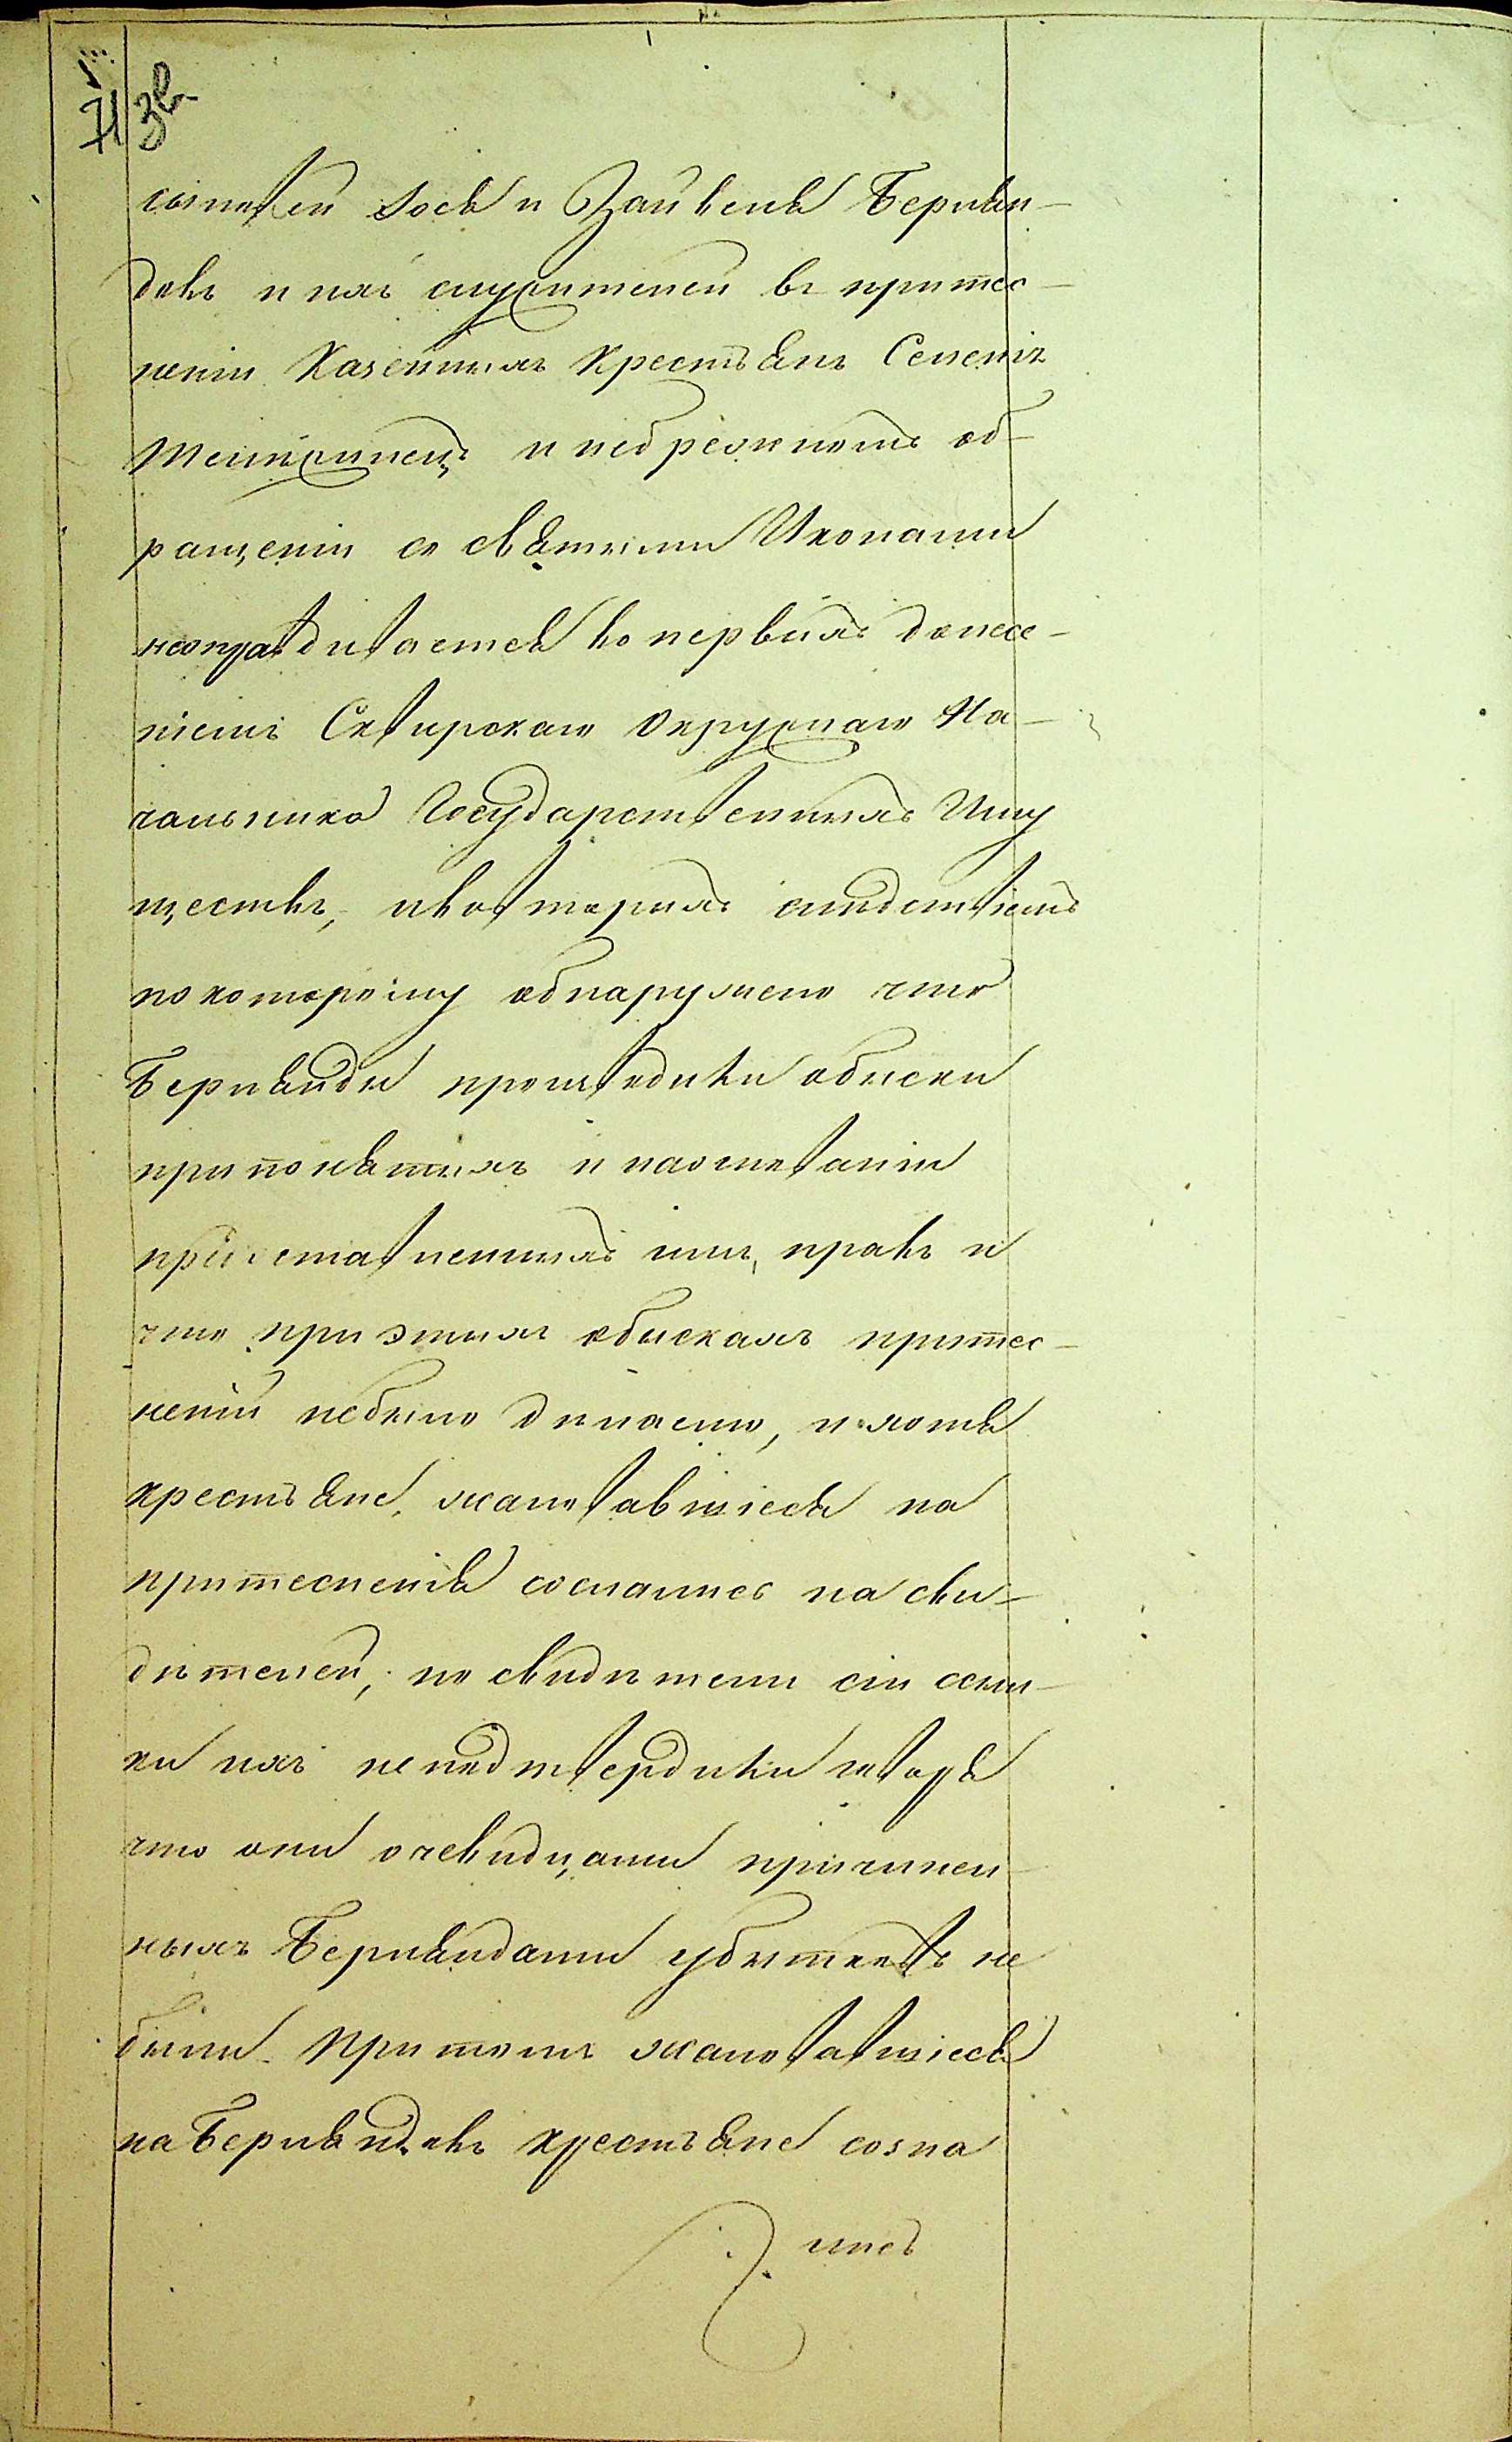 71 зв
сыновей Іося и Зайвеля Бернян-
довъ и ихъ служителей въ притес-
неніи Казенныхъ Крестьянъ Селенія
и небрежномъ об-
ращеніи со святыми Иконами
неоправдивается во первыхъ донесе-
ніемъ Сквирскаго Окружнаго На-
чальника Государственныхъ Иму
ществъ, ивовторыхъ следствіемъ
покоторому обнаружено что
Бернянды производили обыски
припонятыхъ и наосновании
предоставленныхъ имъ, правъ и
что при этихъ обыскахъ притес-
неній небыло делаемо, и хотя
крестьяне, жаловавшіеся на
притесненія сослались на сви-
дѣтелей, но свидѣтели сіи ссыл-
ки ихъ неподтвердили говоря
что они очевидцами причинен-
ныхъ Берняндами убытковъ не
были. Притомъ жаловавшіеся
на Берняндовъ крестьяне созна
лись